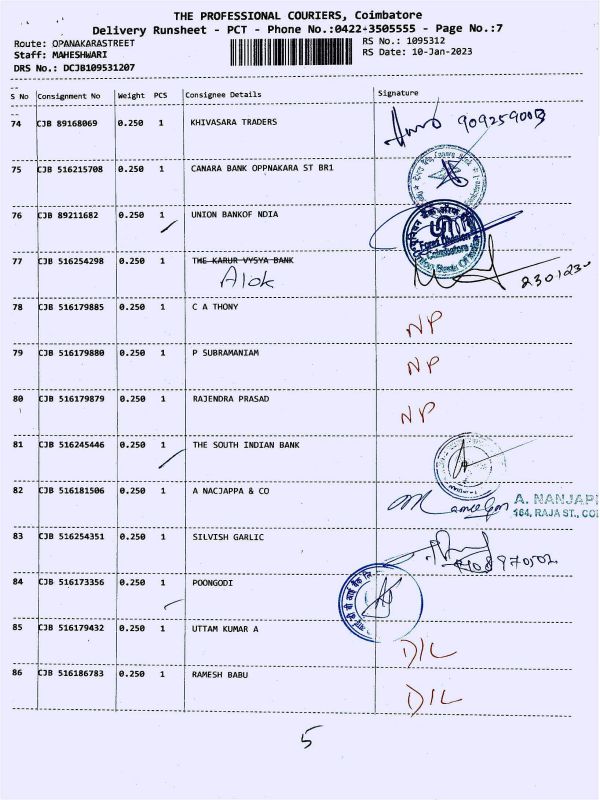 THE PROFESSIONAL COURIERS, Coimbatore
Delivery Runsheet - PCT - Phone No.:0422-3505555 - Page No.:7
Route: OPANAKARASTREET RS No.: 1095312
Staff: MAHESHWARI RS Date: 10-Jan-2023
DRS No.: DCJB109531207
S No Consignment No Weight PCS Consignee Details Signature
74 CJB 89168069 0.250 1 KHIVASARA TRADERS
75 CJB 516215708 0.250 1 CANARA BANK OPPNAKARA ST BR1
76 CJB 89211682 0.250 1 UNION BANKOF NDIA
77 CJB 516254298 0.250 1 THE KARUR VYSYA BANK
Alok
78 CJB 516179885 0.250 1 C A THONY NP
79 CJB 516179880 0.250 1 P SUBRAMANIAM NP
80 CJB 516179879 0.250 1 RAJENDRA PRASAD NP
81 CJB 516245446 0.250 1 THE SOUTH INDIAN BANK
82 CJB 516181506 0.250 1 A NACJAPPA & CO A. NANJAP
164, RAJA ST., COI
83 CJB 516254351 0.250 1 SILVISH GARLIC
84 CJB 516173356 0.250 1 POONGODI
85 CJB 516179432 0.250 1 UTTAM KUMAR A D/L
86 CJB 516186783 0.250 1 RAMESH BABU D/L
5